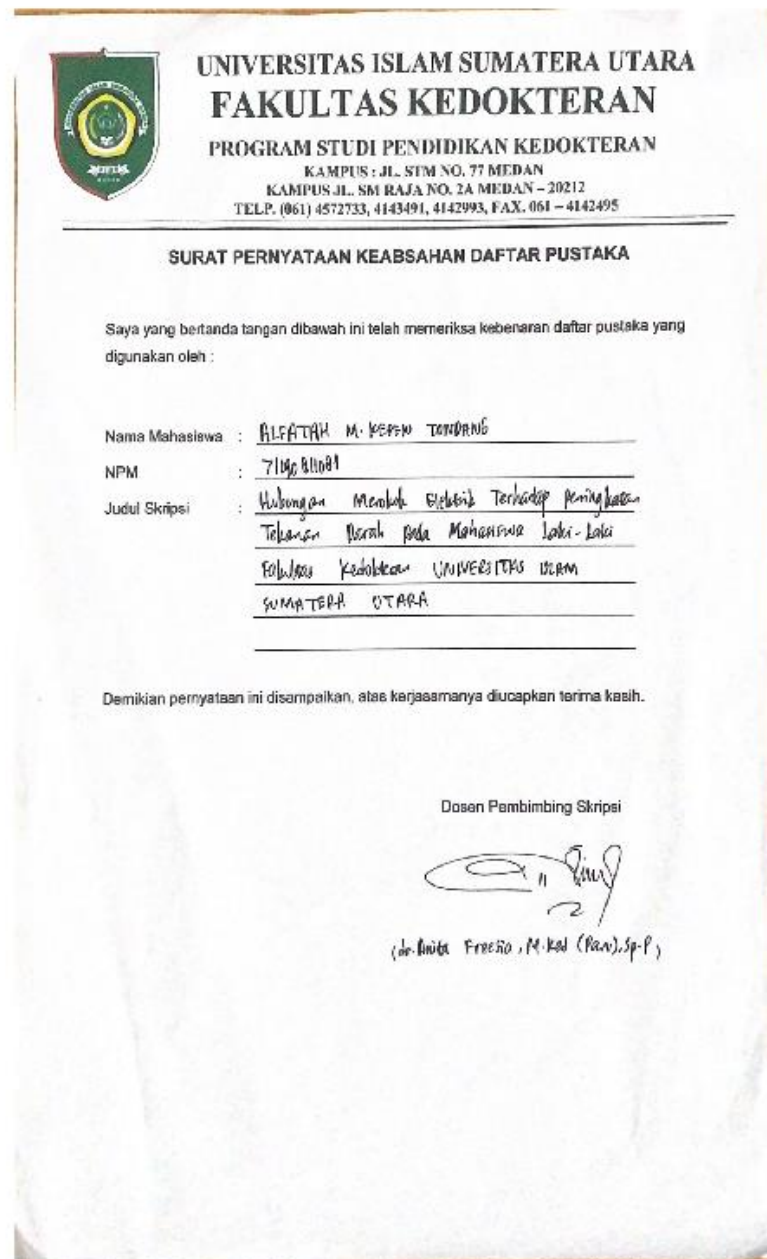 UNIVERSITAS ISLAM SUMATERA UTARA
FAKULTAS KEDOKTERAN
PROGRAM STUDI PENDIDIKAN KEDOKTERAN
KAMPUS : JL. STM NO. 77 MEDAN
KAMPUS JL. SM RAJA NO. 2A MEDAN – 20212
TELP. (061) 4572733, 4143491, 4142993, FAX. 061 – 4142495
SURAT PERNYATAAN KEABSAHAN DAFTAR PUSTAKA
Saya yang bertanda tangan dibawah ini telah memeriksa kebenaran daftar pustaka yang
digunakan oleh :
Nama Mahasiswa : ALFATAH M. TONDANG
NPM :
Judul Skripsi : Hubungan Merokok Elektrik Terhadap Peningkatan
Tekanan Darah Pada Mahasiswa Laki-Laki
Fakultas Kedokteran UNIVERSITAS ISLAM
SUMATERA UTARA
Demikian pernyataan ini disampaikan, atas kerjasamanya diucapkan terima kasih.
Dosen Pembimbing Skripsi
(dr. Anita M.Ked (Paru), Sp.P)